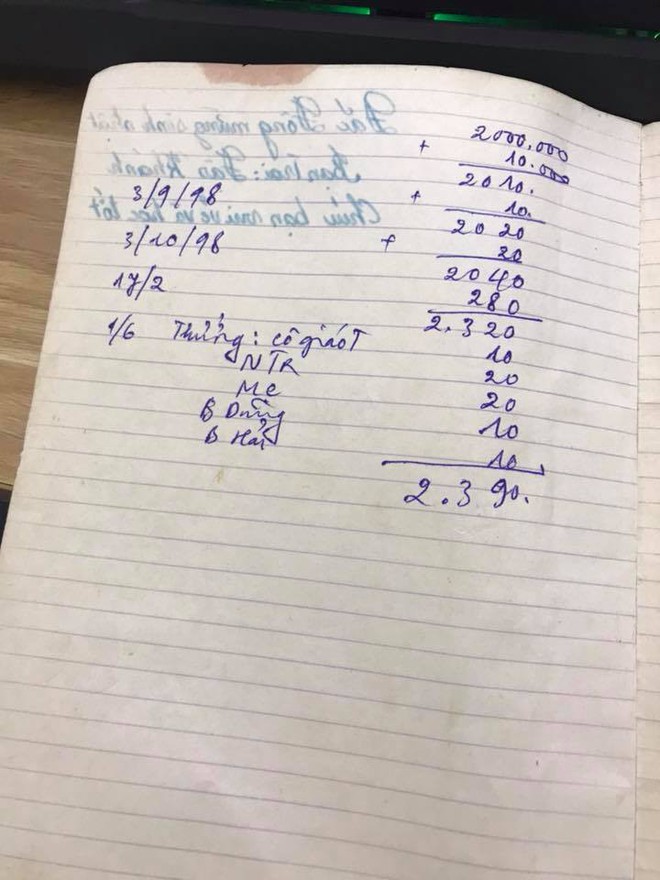 2000.000
+ 10.000
2010.
3/9/98 + 10.
2020
3/10/98 + 20
2040
17/2 280
2.320
1/6 Thưởng: cô giáo T 10
NTR 20
Mẹ 20
B Dũng 10
B Hải 10
2.390.